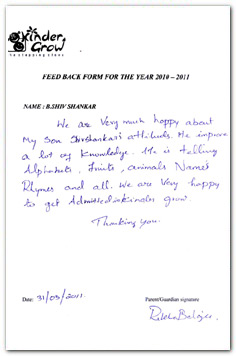 Kinder
Grow
FEED BACK FORM FOR THE YEAR 2010 – 2011
NAME : B.SHIV SHANKAR
We are Very much happy about
My Son Shivshankar's attitude. He improve
a lot of Knowledge. He is telling
Alphabets, Fruits, animals Name's
Rhymes and all. We are Very happy
to get Admitted in kinder grow.
Thanking you.
Date: 31/03/2011.
Parent/Guardian signature